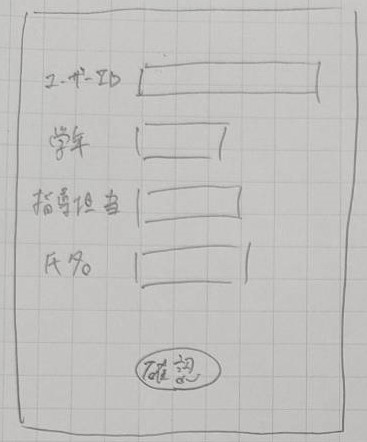 ユーザーID
学年
指導担当
氏名
確認